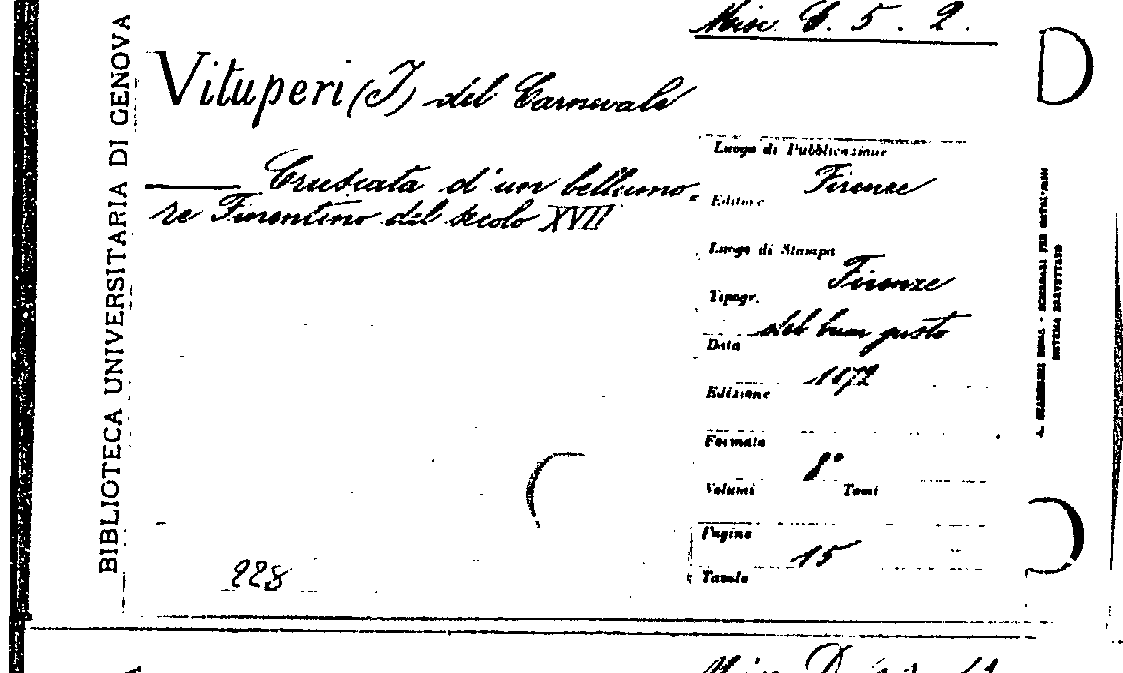 Misc. C. 5. 2.
Vituperi (I) del Carnevale
Cruscata d'un bellumo-
re Fiorentino del secolo XVII
BIBLIOTECA UNIVERSITARIA DI GENOVA
Luogo di Pubblicazione
Firenze
Editore
Luogo di Stampa
Firenze
Tipogr.
del buon gusto
Data
1872
Edizione
Formato
8°
Volumi Tomi
Pagine
15
Tavole
228
Misc.